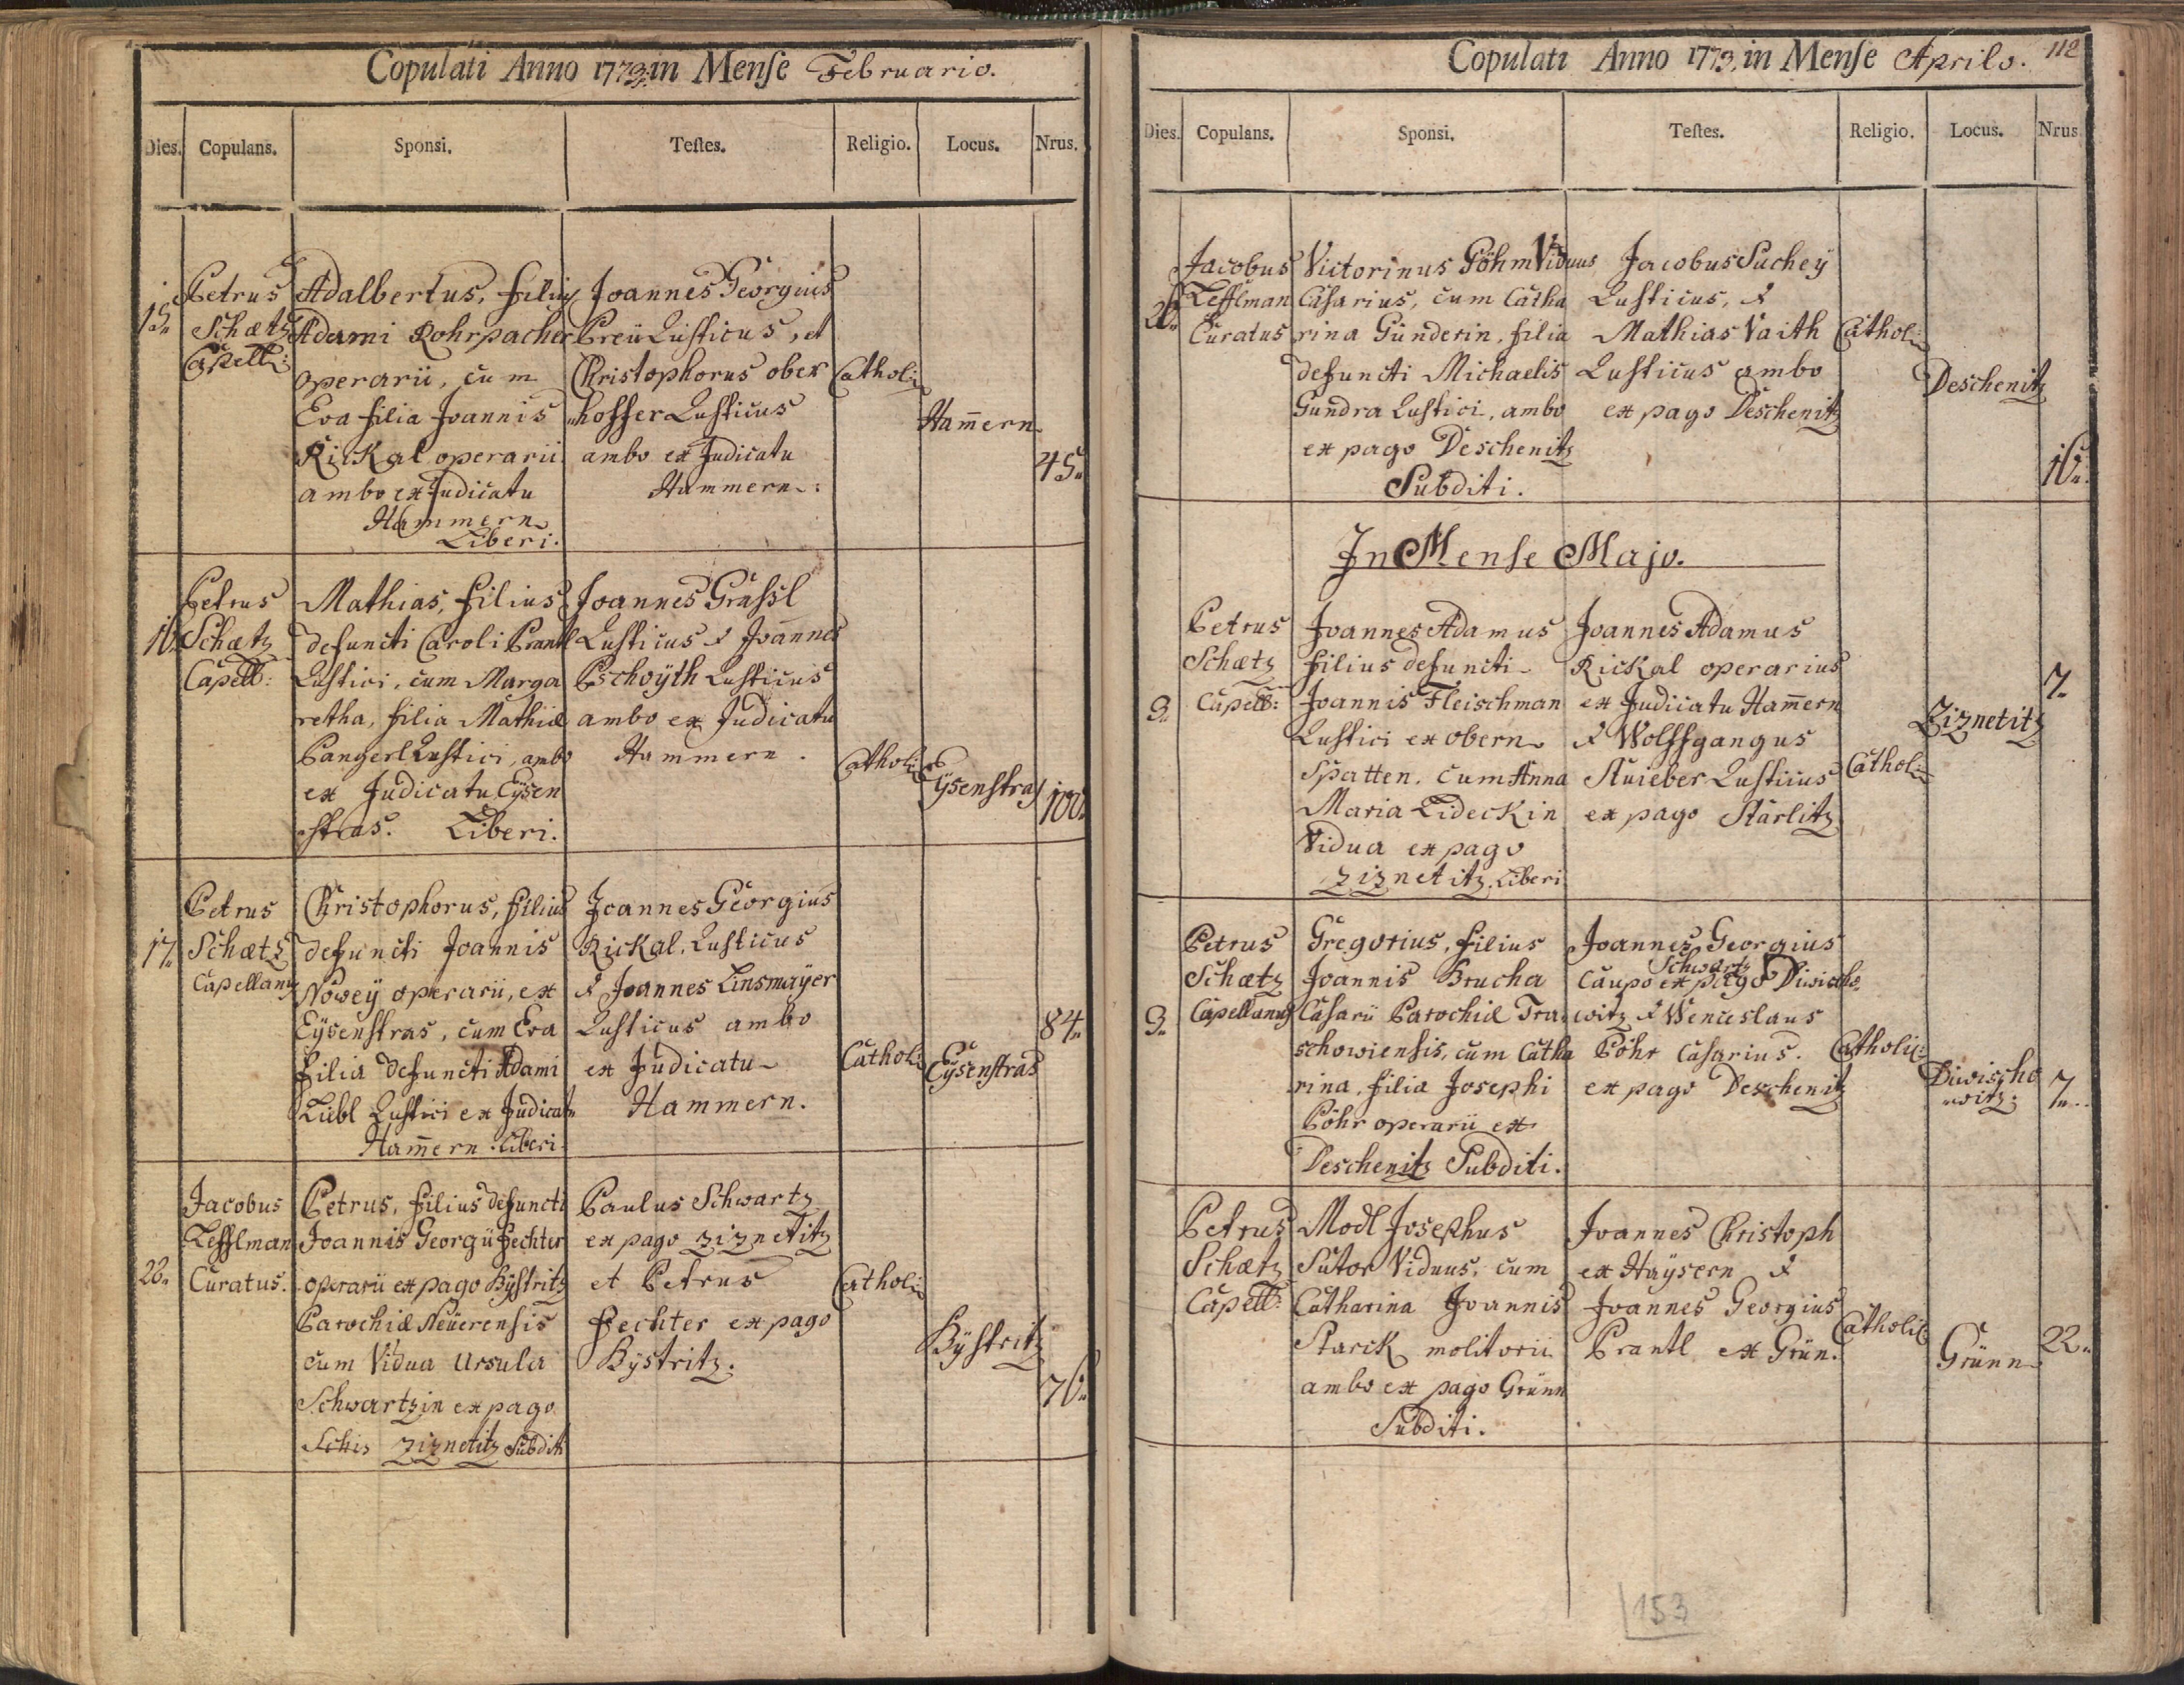 Copulati Anno 1773 in Mense Februario.
Dies. Copulans. Sponsi. Testes. Religio. Locus. Nrus.
15.
Petrus
Schætz
Capell:
Adalbertus, filius
Adami Rohrpacher
operarii, cum
Eva filia Joannis
Rickal operarii
ambo ex Judicatu
Hammern
Liberi.
Joannes Georgius
Preü Rusticus, et
Christophorus ober
hoffer Rusticus
ambo ex Judicatu
Hammern:
Catholi:
Ham̄ern
45.
16.
Petrus
Schætz
Capell:
Mathias, filius
defuncti Caroli Prantl
Rustici, cum Marga
retha, filia Mathiæ
Pangerl Rustici, ambo
ex Judicatu Eÿsen
stras. Liberi.
Joannes Grassl
Rusticus & Joannes
Pschoÿth Rusticus
ambo ex Judicatu
Hammern.
Catholi:
Eÿsenstras
100.
17.
Petrus
Schætz
Capellanus
Christophorus, filius
defuncti Joannis
Noweÿ operarii, ex
Eÿsenstras, cum Eva
filia defuncti Adami
Lübl Rustici ex Judicatu
Ham̄ern. Liberi.
Joannes Georgius
Rickal, Rusticus
& Joannes Linsmaÿer
Rusticus ambo
ex Judicatu
Hammern.
Catholi:
Eÿsenstras
84.
28.
Jacobus
Lefflman
Curatus.
Petrus, filius defuncti
Joannis Georgii Fechter
operarii ex pago Bÿstritz
Parochiæ Neüerensis
cum Vidua Ursula
Schwartzin ex pago
Ziznetitz Subditi
Paulus Schwartz
ex pago Ziznetitz
et Petrus
Fechter ex pago
Bÿstritz.
Catholi:
Bÿstritz
76.
Copulati Anno 1773. in Mense Aprilo. 112
Dies. Copulans. Sponsi. Testes. Religio. Locus. Nrus
26.
Jacobus
Lefflman
Curatus
Victorinus Göhm Viduus
Casarius, cum Catha
rina Gunderin, filia
defuncti Michaelis
Gundra Rustici, ambo
ex pago Deschenitz
Subditi.
Jacobus Sucheÿ
Rusticus, &
Mathias Vaith
Rusticus ambo
ex pago Deschenitz
Catholi:
Deschenitz
16.
In Mense Majo.
9.
Petrus
Schætz
Capell:
Joannes Adamus
filius defuncti
Joannis Fleischman
Rustici ex obern
Spatten, cum Anna
Maria Lideckin
Vidua ex pago
Ziznetitz. Liberi
Joannes Adamus
Rickal operarius
ex Judicatu Ham̄ern
& Wolffgangus
Stuieber Rusticus
ex pago Starlitz
Catholi:
Ziznetitz
7.
9.
Petrus
Schætz
Capellanus
Gregorius, filius
Joannis Brucha
Casarii Parochiæ Tra
schowiensis, cum Catha
rina, filia Josephi
Pöhr operarii ex
Deschenitz Subditi.
Joannes Georgius
Schwartz
Caupo ex pago Diwisho
witz & Wenceslaus
Pöhr Casarius.
ex pago Deschenitz
Catholi:
Diwischo
witz:
7.
Petrus
Schætz
Capell:
Modl Josephus
Sutor Viduus, cum
Catharina Joannis
Starck molitorii
ambo ex pago Grünn
Subditi.
Joannes Christoph
ex Haÿsern &
Joannes Georgius
Prantl ex Grün.
Catholi:
Grünn
22.
153